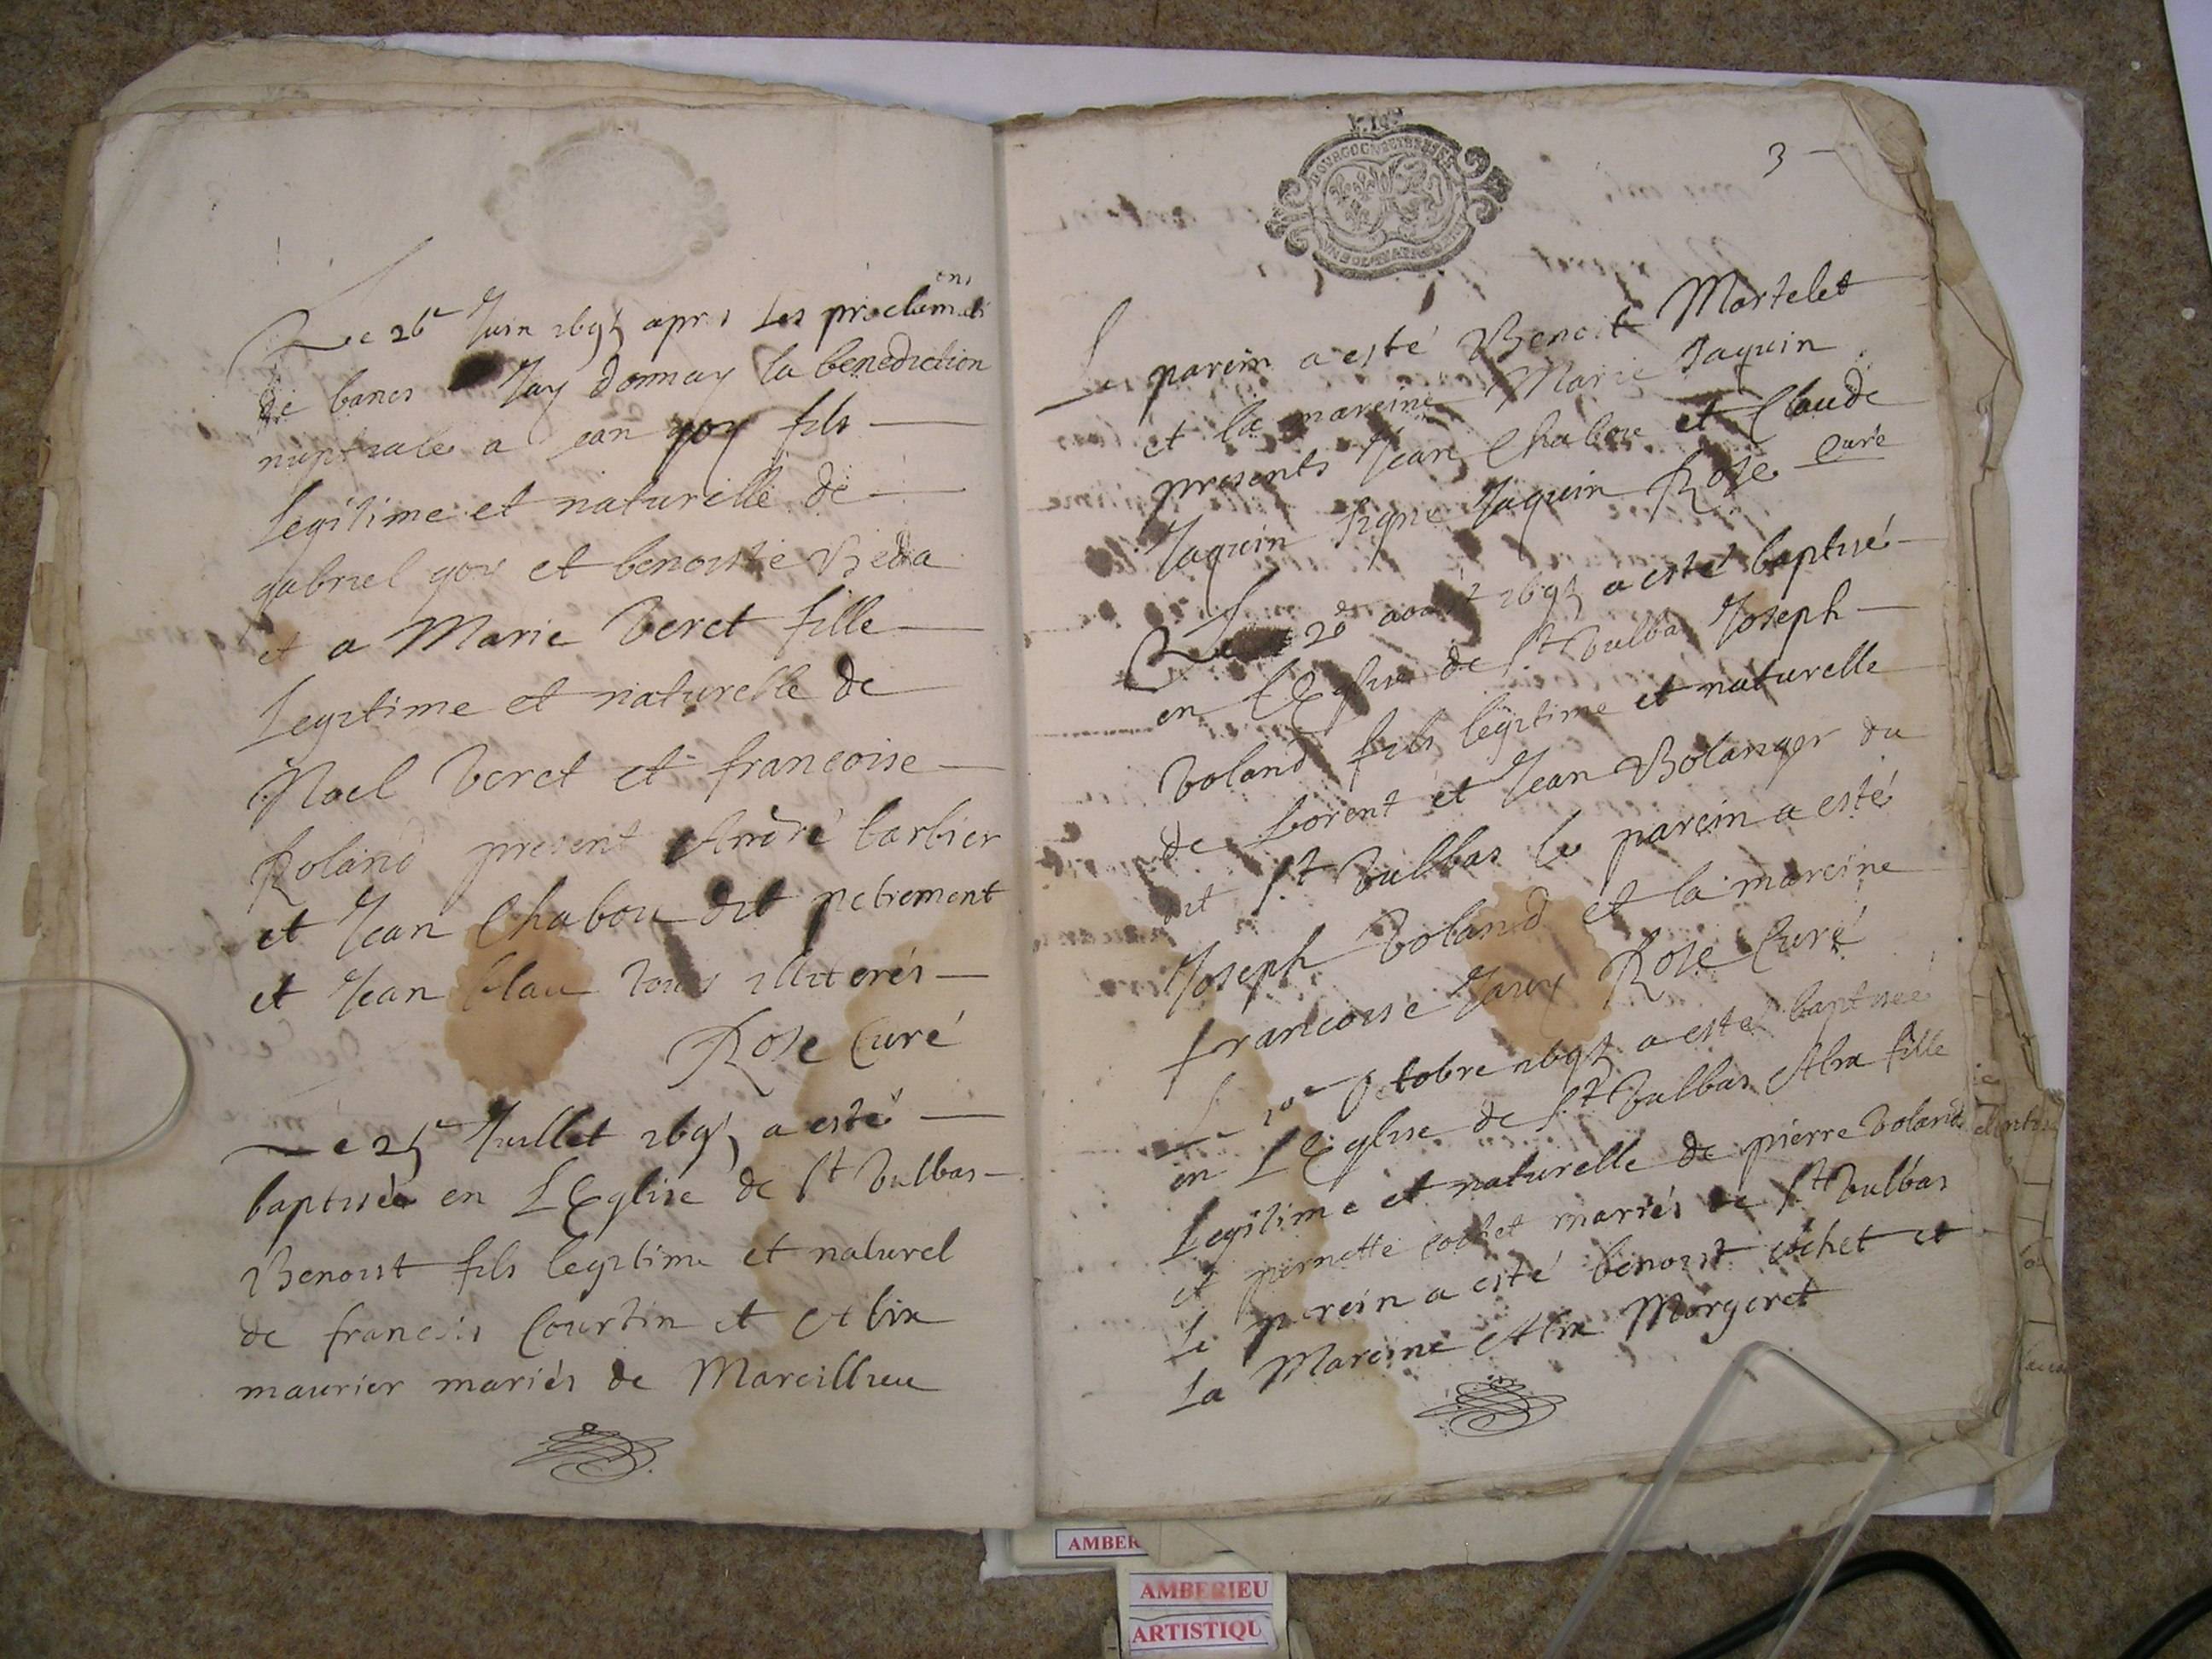 ons
Le 26e Juin 1695 apres Les proclamati
de bancs Jay donnay la benediction
nuptiale a jean goy fils
Legitime et naturelle de
gabriel goy et benoiste
et a Marie Veret fille
Legitime et naturelle de
Noel Veret et francoise
Roland present André barbier
et Jean Chabou dit
et Jean Clau tous illiterés
Rose Curé
Le 25e Juillet 1695 a esté
baptisée en LEglise de St Vulbas
Benoist fils legitime et naturel
de francois Courtin et Alix
maurier mariés de Marcillieu
3
BOURGOGNE
Le parein a esté Benoit Martelet
et la mareine Marie Jaquin
presents Jean Chabou et Claude
Jaquin signe Jaquin Rose Curé
Le 20 aoust 1695 a esté baptisé
en LEglise de St Vulbas Joseph
Voland fils legitime et naturelle
de Lorent et Jean Bolanger du
dit St Vulbas le parein a esté
Joseph Voland et la mareine
francoise Rose Curé
Le 10e Octobre 1695 a esté baptisée
en LEglise de St Vulbas Alix fille
Legitime et naturelle de pierre Voland
et pernette cochet mariés de St Vulbas
Le parein a esté benoist cochet et
La Mareine Alix Margeret
AMBER
AMBERIEU
ARTISTIQU